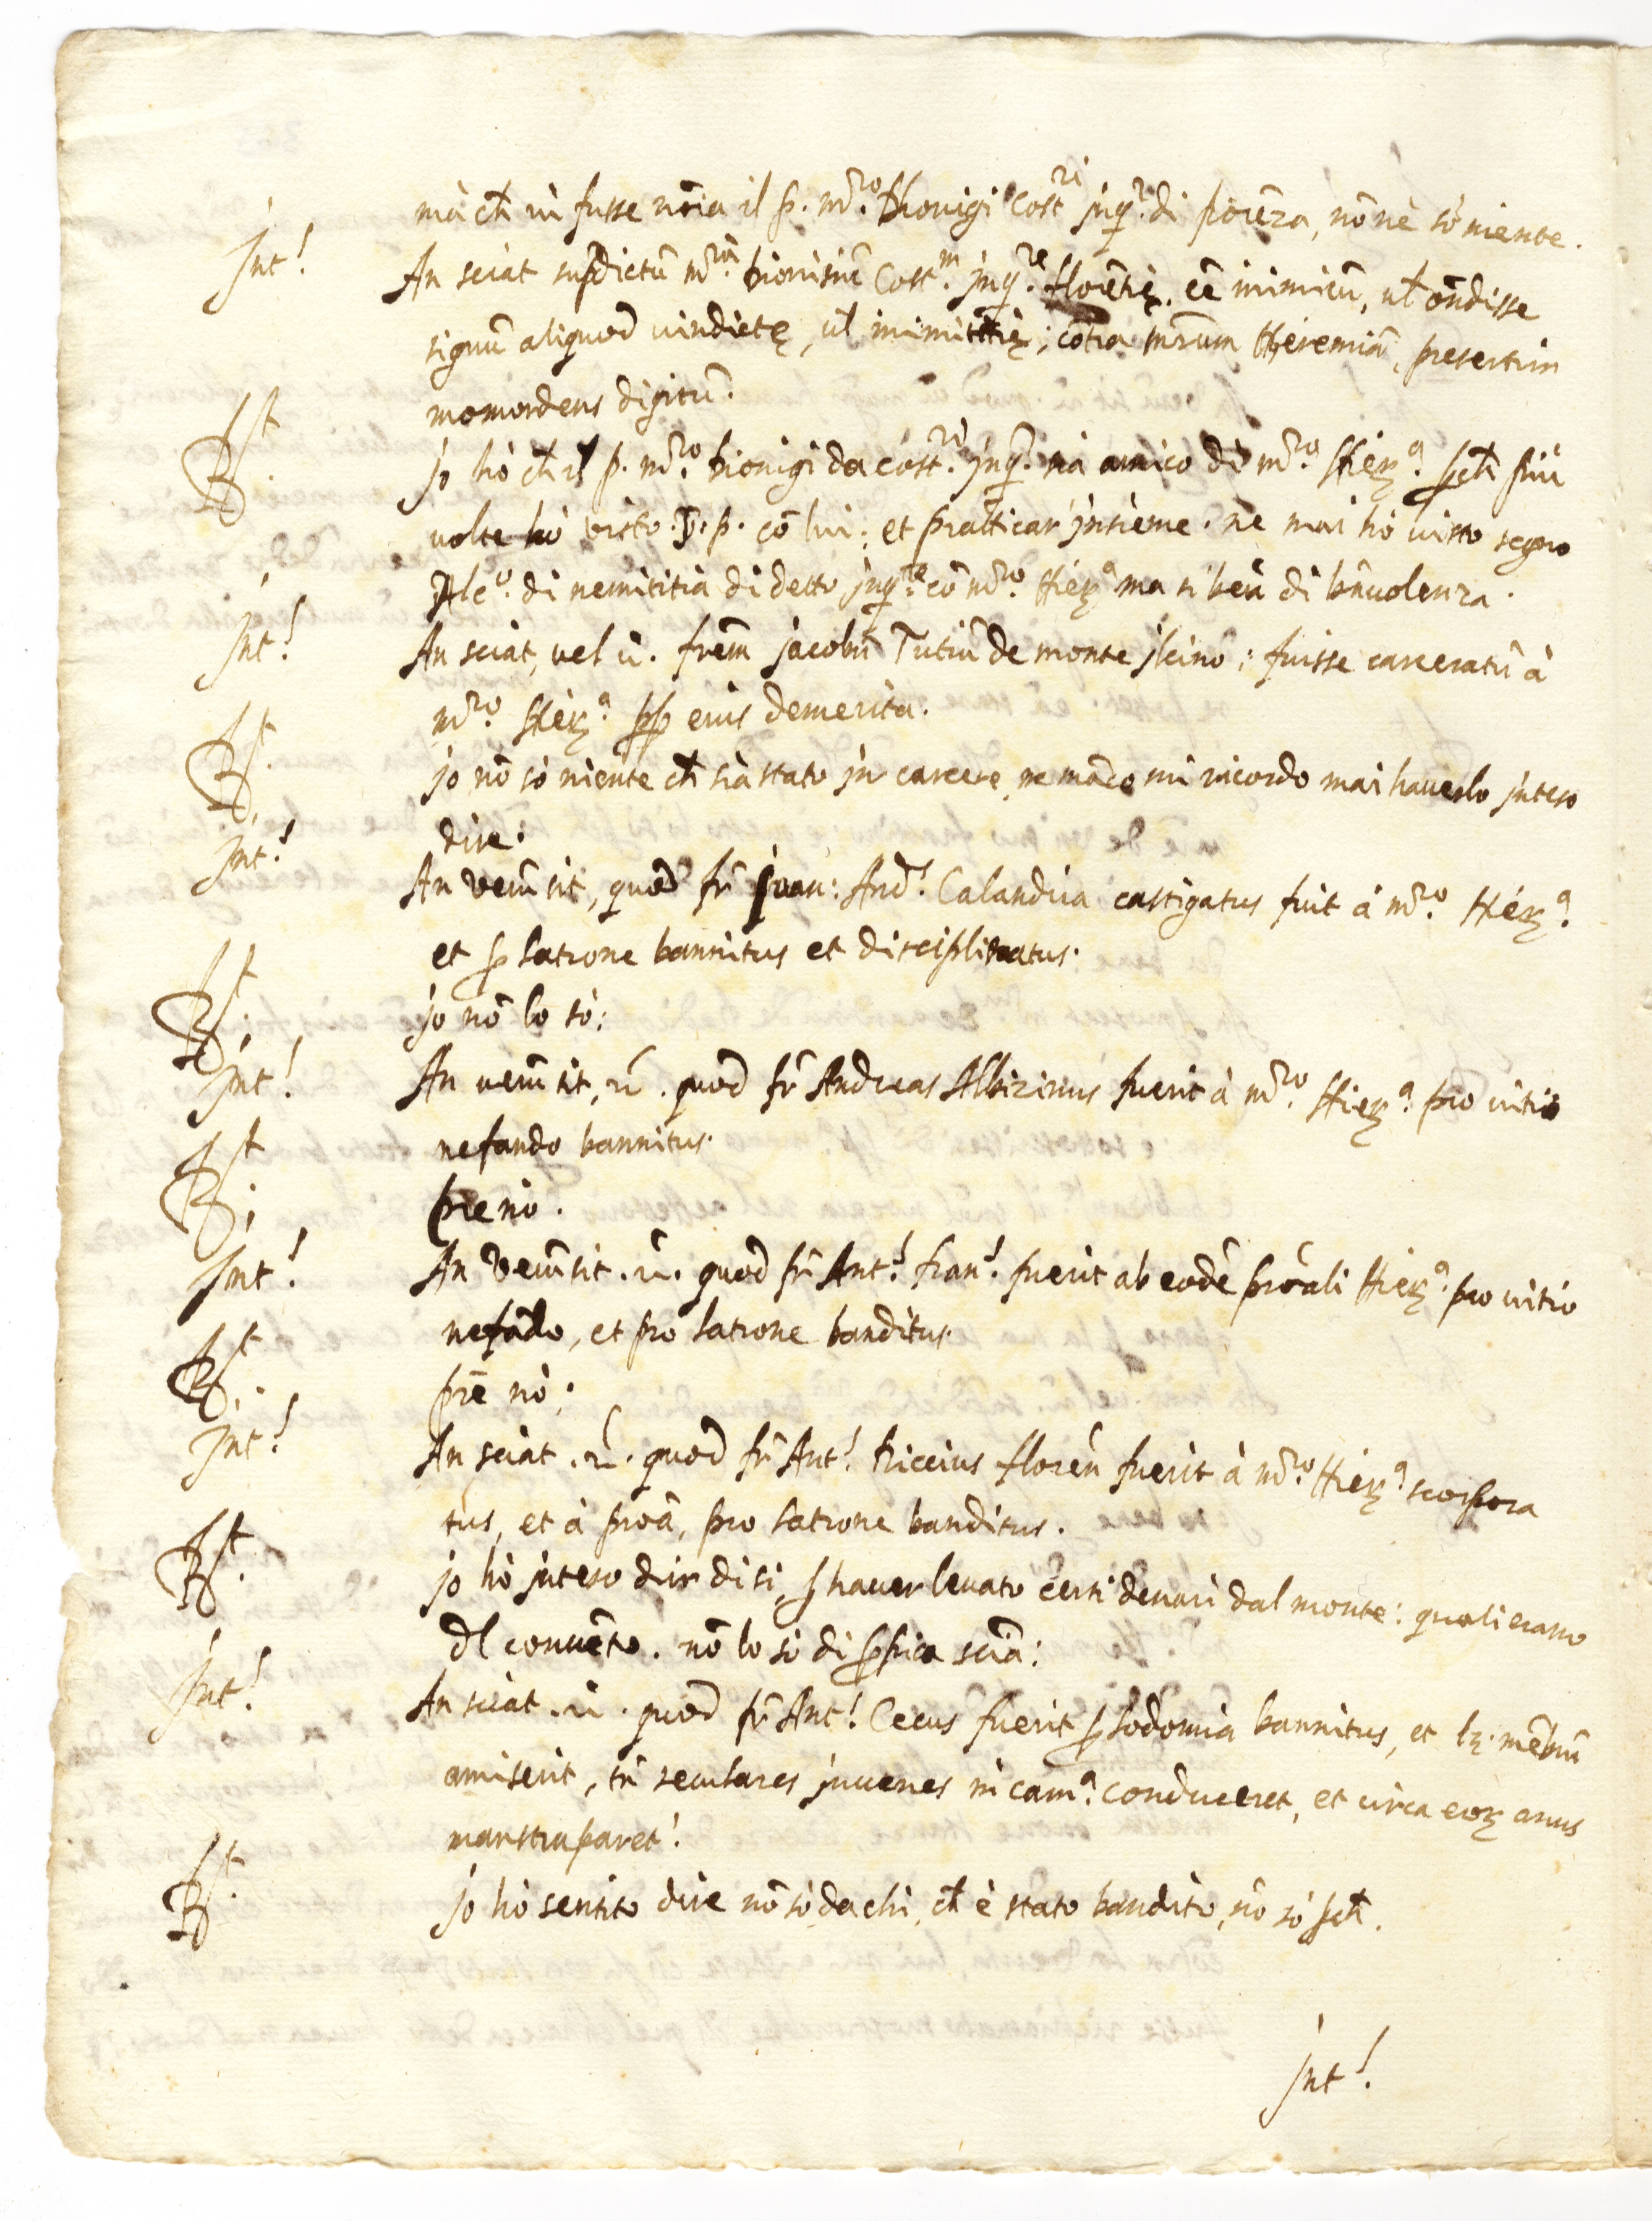 mà ch̃ vi fusse nõia il p. mr̃o. Dionigi Costri Inqr̃. di fiorẽza, nõ nè sò niente.
Int! An sciat supdictũ mr̃ũ. Dionisiũ Costm. Inqre. florẽtiȩ. eẽ inimicũ, ul̃ oñdisse
signũ aliquod uindictȩ, ul̃ inimititiȩ, cõtra mr̃um Hieremiã, presertim
momordens digitũ.
Rt. Io hò ch̃ il p. mr̃o. Dionigi da Costri. Inqr̃. sia amico di mr̃o. Hierꝫa. pch̃ piu
uolte hò visto. D. p. cõ lui; et pratticar' Insieme. ne mai hò uisto segno
Alco. di nemititia di detto Inqre. cõ mr̃o. Hierꝫa ma si beñ di bñuolenza.
Int! An sciat, uel ũ. frẽm Jacobũ Tutiũ de monte Ilcino; fuisse carceratũ à
mr̃o. Hierꝫa. pp eius demerita.
Rt. Io nõ sò niente ch̃ sia stato In carcere, ne mãco mi ricordo mai hauerlo Inteso
dire.
Int! An verũ sit, quod fr̃ Joan: And! Calandria castigatus fuit à mr̃o. Hierꝫa.
et p latrone bannitus et disciplinatus.
Rt. Io nõ lo sò:
Int! An uerũ sit, ũ. quod fr̃ Andreas Albizinus fuerit à mr̃o. Hierꝫa. pro uitio
nefando bannitus.
Rt. Pre nò.
Int! An Verũ sit. ũ. quod fr̃ Ant! fran! fuerit ab eodẽ prõali Hierꝫa. pro uitio
nefãdo, et pro latrone banditus.
Rt. prẽ nò;
Int! An sciat. ũ. quod fr̃ Ant! Riccius florẽn fuerit à mr̃o. Hierꝫa scorpora
tus, et à proã, pro latrone banditus.
Rt. Io hò Inteso dir di si, p hauer leuato certi denari dal monte: quali erano
dl conuẽto. nõ lo sò di ppria sciã:
Int! An sciat. ũ. quod fr̃ Ant! Cecus fuerit p sodomia bannitus, et lȝ. mẽbrũ
amiserit, tñ seculares Iuuenes in cama. conduceret, et circa eorꝫ anus
manstruparet!
Rt. Io hò sentito dire nõ sò da chi, ch̃ è stato bandito, nõ sò pch̃.
Int!